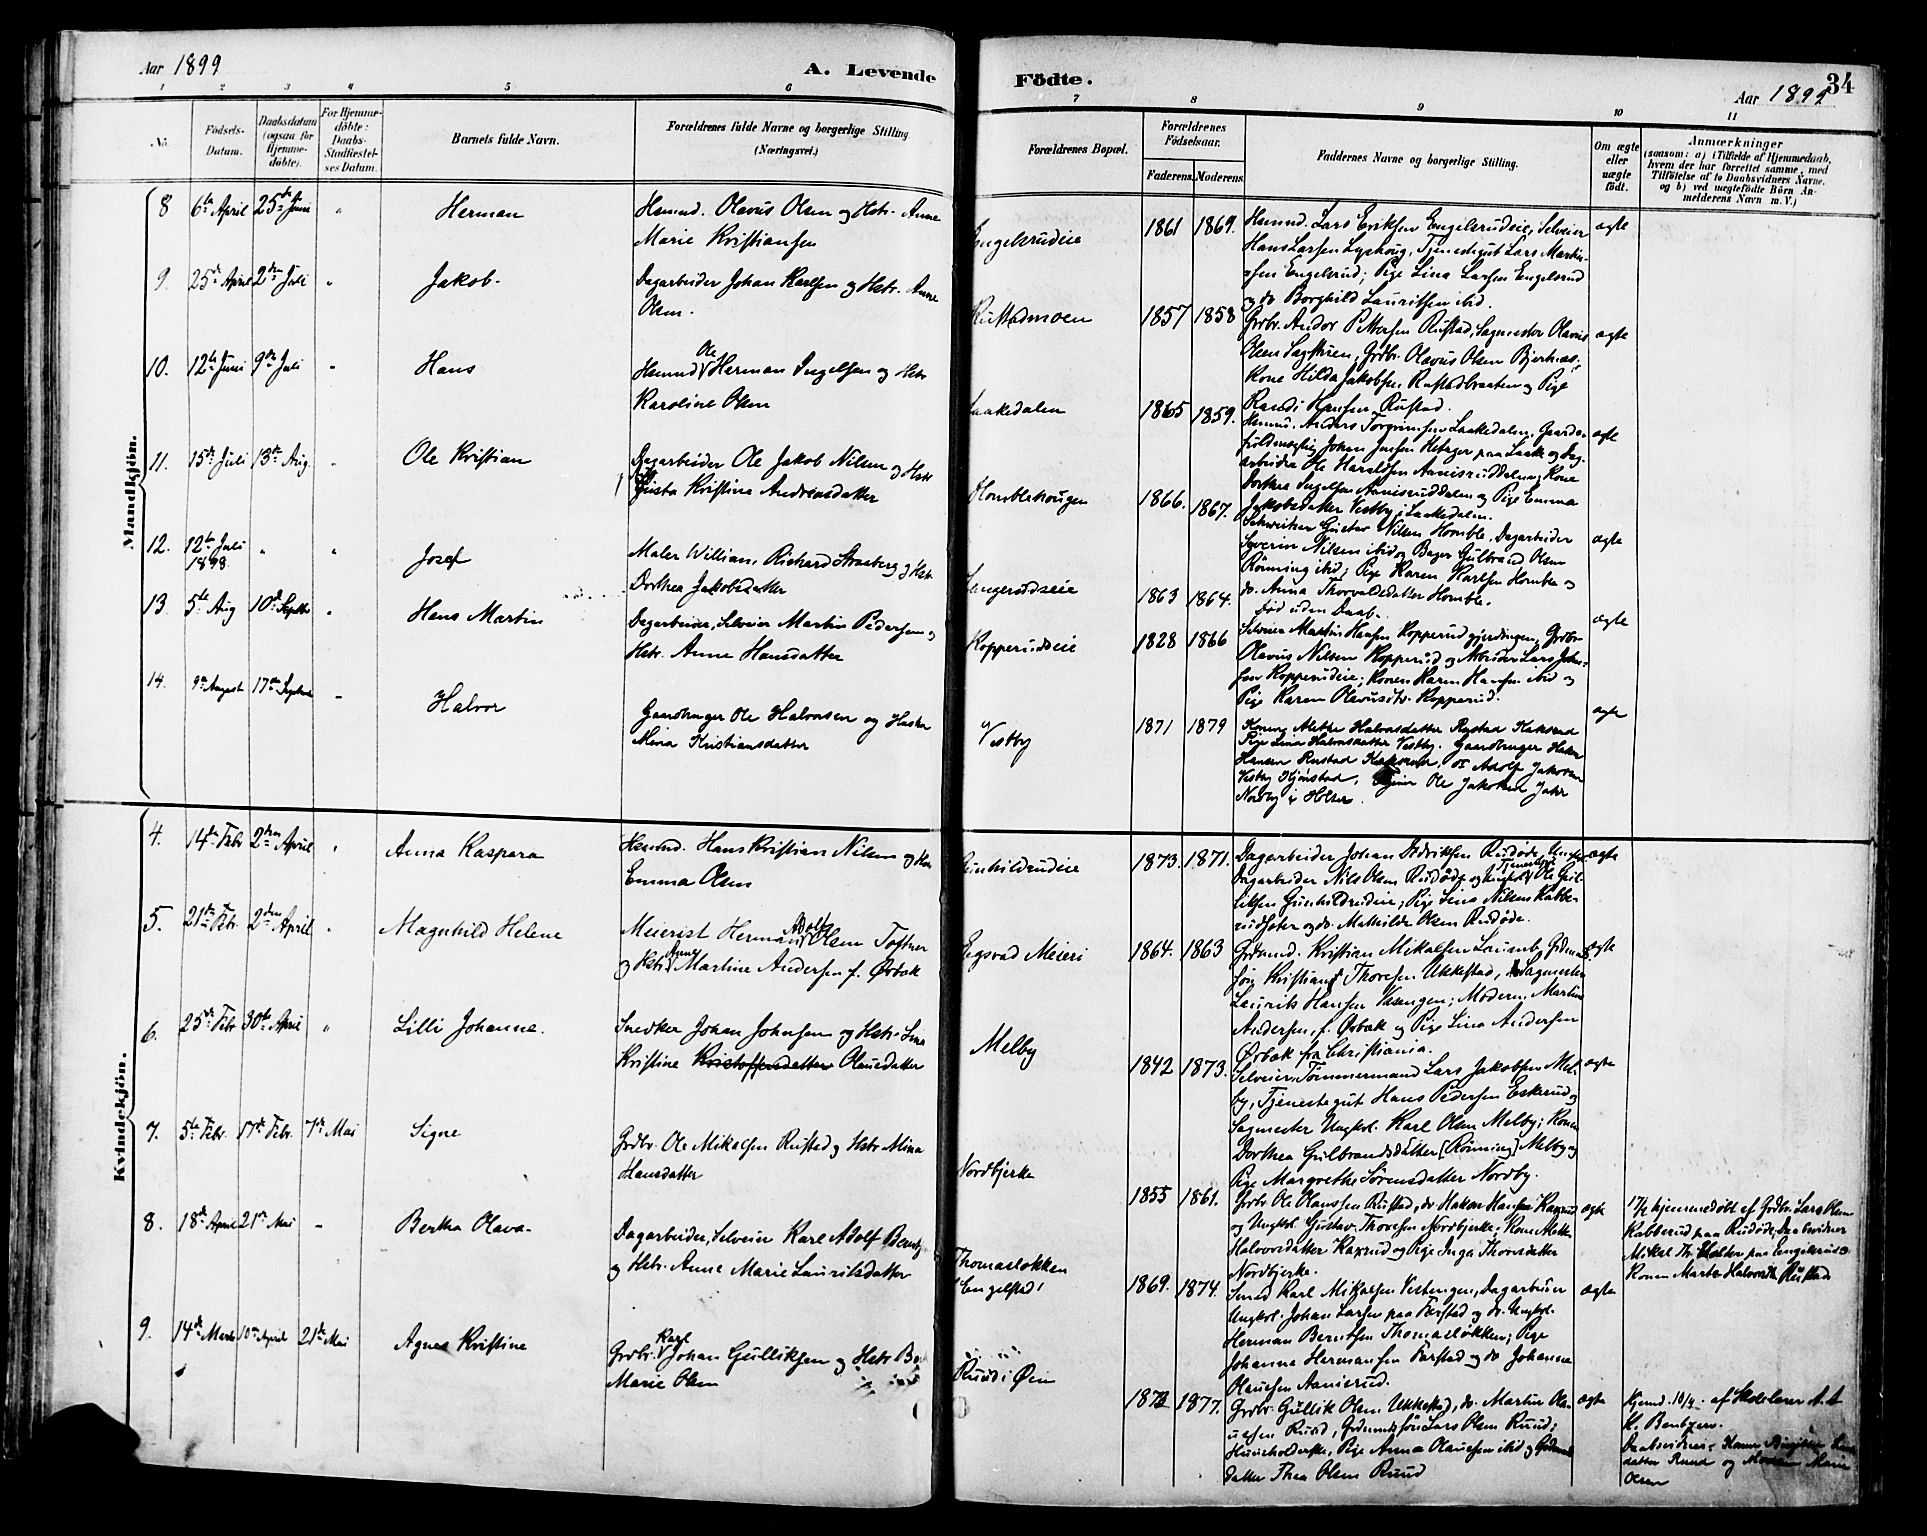 Aar 1899
A. Levende
Födte.
Aar 1899
34
1 2 3 4 5 6
7 8 9 10 11
No.
Födsels-
Datum.
Daabsdatum
(ogsaa for
Hjemme-
döbte).
For Hjemme-
döbte:
Daabs-
Stadfæstel-
ses Datum.
Barnets fulde Navn.
Forældrenes fulde Navne og borgerlige Stilling
(Næringsvei.)
Forældrenes Bopæl.
Forældrenes
Födselsaar.
Faderens. Moderens.
Faddernes Navne og borgerlige Stilling.
Om ægte
eller
uægte
födt.
Anmærkninger
(saasom: a) i Tilfælde af Hjemmedaab,
hvem der har forrettet samme, med
Tilföielse af to Daabsvidners Navne,
og b) ved uægtefödte Börn An-
melderens Navn m. V.)
Mandkjön.
8 6te April 25de Juni " Herman
Husmd. Olavus Olsen og Hstr. Anne
Marie Kristiansen
Engelsrudeie 1861 1869.
Husmd. Lars Eriksen Engelsrudeie, Selveier
Hans Larsen Lyshoug, Tjenestegut Lars Martin-
sen Engelsrud; Pige Lina Larsen Engelsrud
og do Borghild Lauritsen ibid.
ægte
9. 25de April 2den Juli " Jakob.
Dagarbeider Johan Karlsen og Hstr. Anne
Olsen.
Rustadmoen 1857 1858
Grdbr. Andor Pettersen Rustad, Sagmester Olavus
Olsen Sagstuen, Grdbr. Olavus Olsen Bjerknæs,
Kone Hilda Jakobsen Rustadbraaten og Pige
Randi Hansen Rustad.
ægte
10. 12te Juni 9de Juli " Hans
Husmd Ole Herman Ingelsen og Hstr
Karoline Olsen
Laakedalen 1865 1859.
Husmd. Anders Torgrimsen Laakedalen, Gaards-
fuldmægtig Johan Jensen Hetager paa Laake og Dag-
arbeider Ole Haraldsen Aanisruddalen; Kone
Dorthea Ingelsen Aanisruddalen og Pige Emma
Jakobsdatter Vestby i Laakedalen.
ægte
11. 15de Juli 13de Aug. " Ole Kristian
Dagarbeider Ole Jakob Nilsen og Hstr
Gusta Kristine Andreasdatter
Homblehougen 1866. 1867.
Schweitzer Gustav Nilsen Homble, Dagarbeider
Severin Nilsen ibid og Bager Gulbrand Olsen
Rönning ibid; Pige Karen Karlsen Homble og
do. Anna Thorvaldsdatter Homble.
ægte
12. 12te Juli " " Josef
1898.
Maler William Richard Strasberg og Hstr.
Dorthea Jakobsdatter
Langerudseie 1863 1864.
Död uden Daab.
ægte
13. 5te Aug 10de Septbr " Hans Martin
Dagarbeider, Selveier Martin Pedersen og
Hstr. Anne Hansdatter
Kopperudseie 1828 1866
Selveier Martin Hansen Kopperudgjerdingen, Grdbr
Olavus Nilsen Kopperud og Arbeider Lars Johan-
sen Kopperudeie; Konen Karen Hansen ibid og
Pige Karen Olavusdtr. Kopperud.
ægte
14. 9de August 17de Septbr " Halvor
Gaardbruger Ole Halvorsen og Hustru
Mina Kristiansdatter
Vestby 1871 1879
Konen Alethe Halvorsdatter Rustad Kaksrud
Pige Lina Halvorsdatter Vestby. Gaardbruger Hakon
Hansen Rustad Kaksrud, Adolf Jakobsen
Vestby Hjönstad, Ole Jakobsen Jahr
Nordby i Höland.
ægte
Kvindekjön.
4. 14de Febr 2den April " Anna Kaspara
Husmd. Hans Kristian Nilsen og Hstr
Emma Olsen
Gunhildrudeie 1873. 1871.
Dagarbeider Johan Fredriksen Rudöde,
Dagarbeider Nils Olsen Rudöde og Tjenestgut Ole Gul-
liksen Gunhildrudeie; Pige Lina Nilsen Kabbe-
rudsæter og do. Mathilde Olsen Rudöde.
ægte
5. 21de Febr. 2den April " Magnhild Helene
Meierist Herman Adolf Olsen Toftner
og Hstr Anna Martine Andersen f. Örbæk
Egsrud Meieri 1864. 1863
Grdmnd. Kristian Mikalsen Laumb, Grdmds.
sön Kristian Thoresen Ukkestad, Sagmester
Laurits Hansen Vaangen; Moderen Martine
Andersen, f. Örbæk og Pige Lina Andersen
Örbæk fra Christiania.
ægte
6. 25de Febr 30te April " Lilli Johanne.
Snedker Johan Johnsen og Hstr. Lina
Kristine Kristoffersdatter Olausdatter
Melby 1842 1873.
Selveier, Tömmermand Lars Jakobsen Mel-
by, Tjenestegut Hans Pedersen Eskerud og
Sagmester Ungkl. Karl Olsen Melby; Konen
Dorthea Gulbrandsdatter (Rönning) Melby og
Pige Margrethe Sörensdatter Nordby.
ægte
7. 5te Febr. 17de Febr. 7de Mai Signe
Grdbr. Ole Mikalsen Rustad og Hstr Mina
Hansdatter
Nordbjerke 1855 1861.
Grdbr. Ole Olaussen Rustad, do Hakon Hansen Kaxrud
og Ungkl. Gustav Thoresen Nordbjerke; Kone Mathea
Halvorsdatter Kaxrud og Pige Inga Thorsdatter
Nordbjerke.
ægte
17/2 hjemmedöbt af Grdbr. Lars Olsen
Kabberud paa Rudöde, Daabsvidner
Mikal Th. Holter paa Engelsrud og
Konen Marte Halvorsdt. Rustad
8. 18de April 21de Mai " Bertha Olava.
Dagarbeider, Selveier Karl Adolf Berntsen
og Hstr. Anne Marie Lauritsdatter
Thomaslökken
(Engelstad) 1869. 1874.
Smed Karl Mikalsen Vestengen, Dagarbeider
Ungkl. Johan Larsen paa Farstad og do. Ungkl.
Herman Berntsen Thomaslökken; Pige
Johanna Hermansen Farstad og do Johanne
Olausen Aanisrud.
ægte
9. 14de Marts 10de April 21de Mai Agnes Kristine
Grdbr. Karl Johan Gulliksen og Hstr
Marie Olsen
Ruud i Öien 1873 1877.
Grdbr. Gullik Olsen Ukkestad, do. Martin Ola-
usen Ruud, Grdmandssön Lars Olsen Ruud;
Huusholderske, Pige Anna Olausen ibid og Grdmds
datter Thea Olsen Ruud
ægte
Hjemd. 10/4 af Skolelærer A. A.
Kl. Berdzen.
Daabsvidner: Konen
datter Ruud og Moderen Marie
Olsen